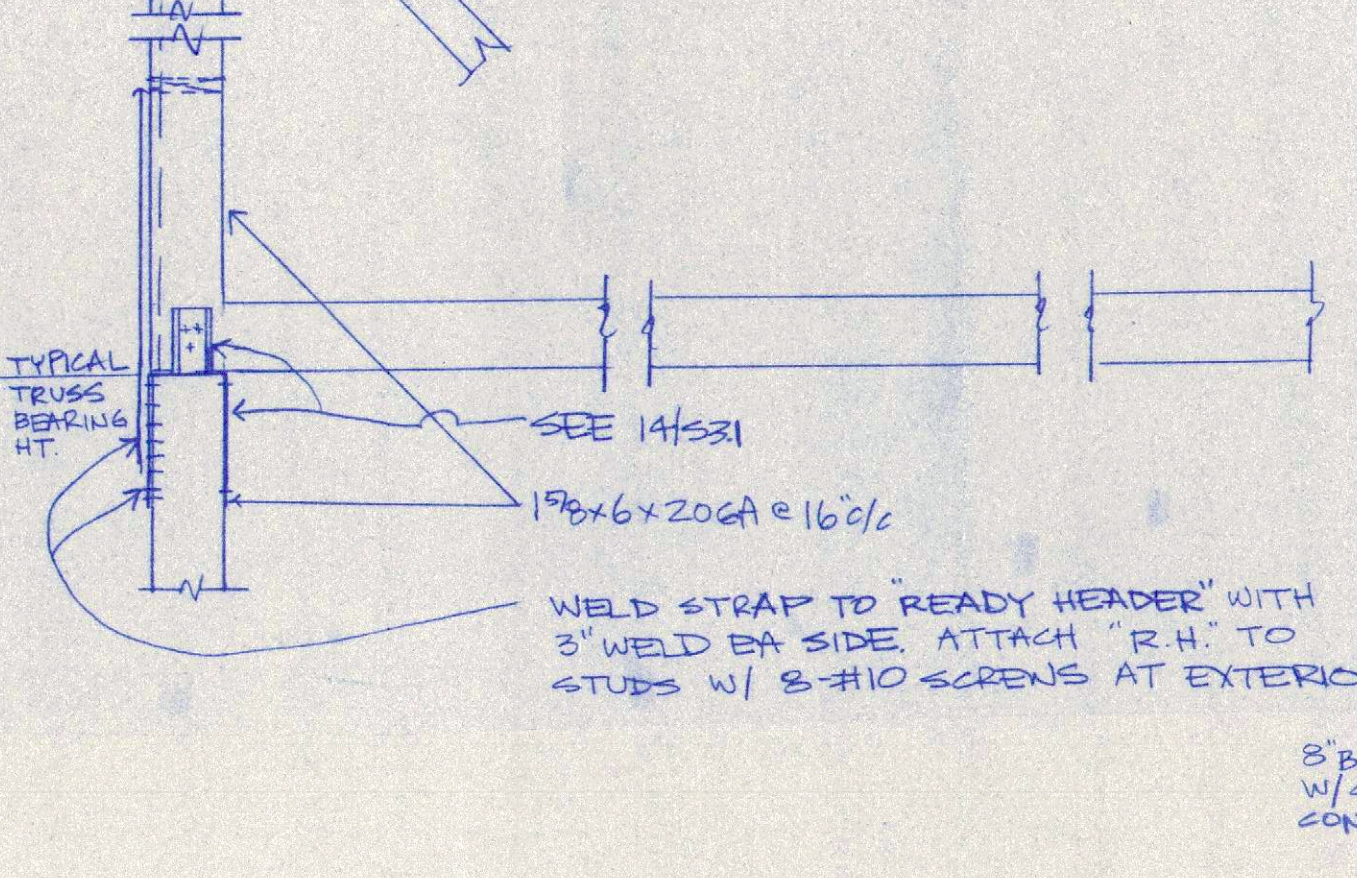 TYPICAL
TRUSS
BEARING
HT.
SEE 14/S3.1
1 5/8 x 6 x 20GA @ 16" c/c
WELD STRAP TO "READY HEADER" WITH
3" WELD EA SIDE. ATTACH "R.H." TO
STUDS W/ 8-#10 SCREWS AT EXTERIO
8" B
W/
CON